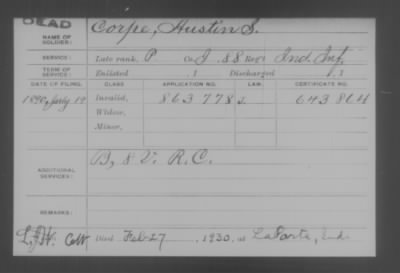 DEAD
NAME OF SOLDIER: Corpe, Austin S.
SERVICE: Late rank, P. Co. I, 88 Reg't Ind. Inf.
TERM OF SERVICE: Enlisted , 1 Discharged , 1
DATE OF FILING. CLASS. APPLICATION NO. LAW. CERTIFICATE NO.
1890, July 19 Invalid, 863 778 643
Widow,
Minor,
ADDITIONAL SERVICES: B, 8 V. R. C.
REMARKS:
Died Feb 27, 1930, at LaPorte, Ind.